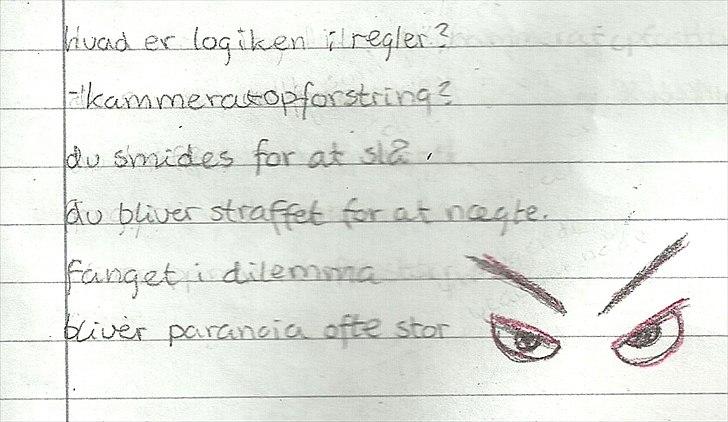 hvad er logiken i regler?
-kammeratopforstring?
du smides for at slå.
du bliver straffet for at nægte.
fanget i dilemma
bliver paranoia ofte stor